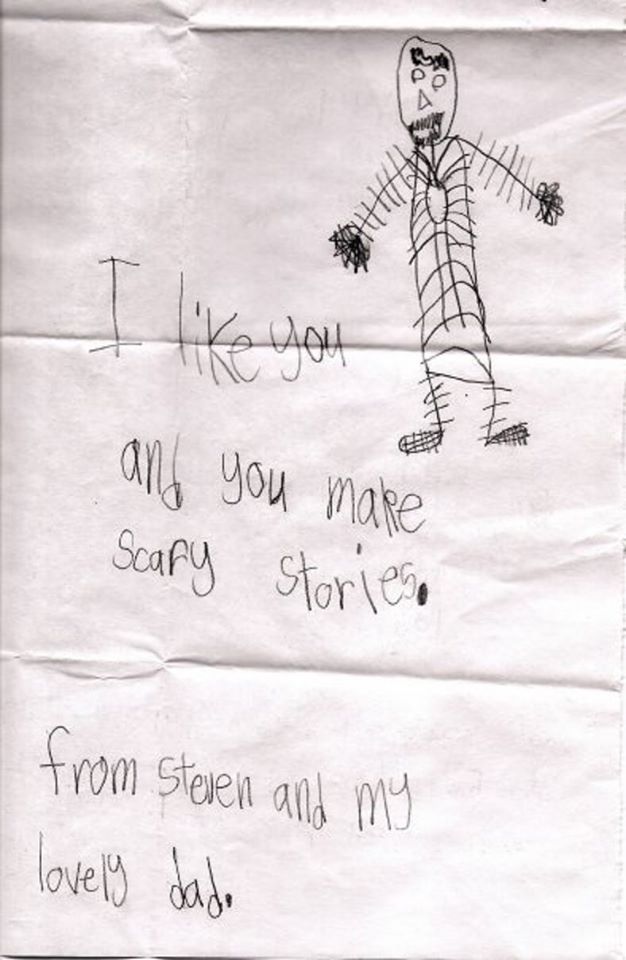 I like you
and you make
scary stories.
from steven and my
lovely dad.